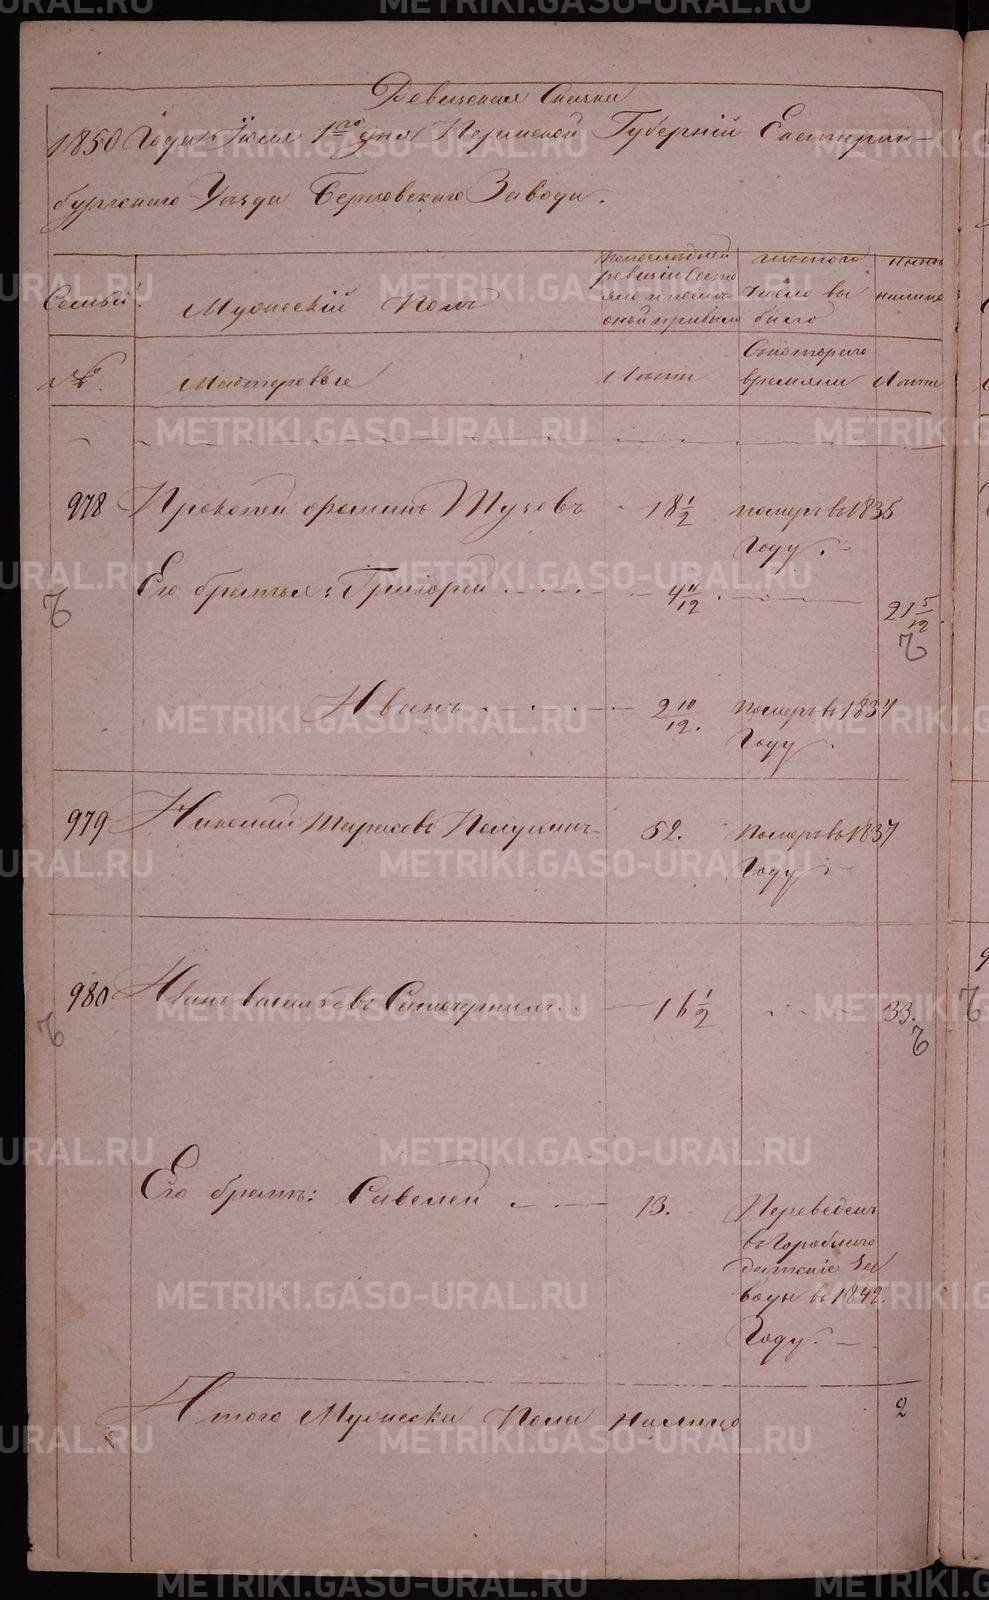 Ревизская Сказка
1850 Года Июля 1го дня Пермской Губернiй Екатерин-
бургскаго Уезда Березовскаго Завода.
Семьи.
Мужескiй Полъ
По последней
ревизiи Состо
яло и после
оной прибыло
изъ того
Числа вы
было
ныне
налицо
№
Мастеровые
Лета
Съ котораго
времяни
Лета
978 Прокопей фоминъ Тузовъ - 18 1/2 померъ въ 1835
Году.
Его братья: Григорей 4 11/12 21 5/12.
Иванъ 2 10/12. Померъ въ 1837
Году.
979 Николай Тарасовъ 52. Померъ въ 1837
Году
980 Иванъ васильевъ 16 1/2 33.
Его братъ: Савелей 13. Переведенъ
въ Гороблаго
датскiе За
воды въ 1842.
Году.
Итого Мужеска Пола налицо 2
METRIKI.GASO-URAL.RU